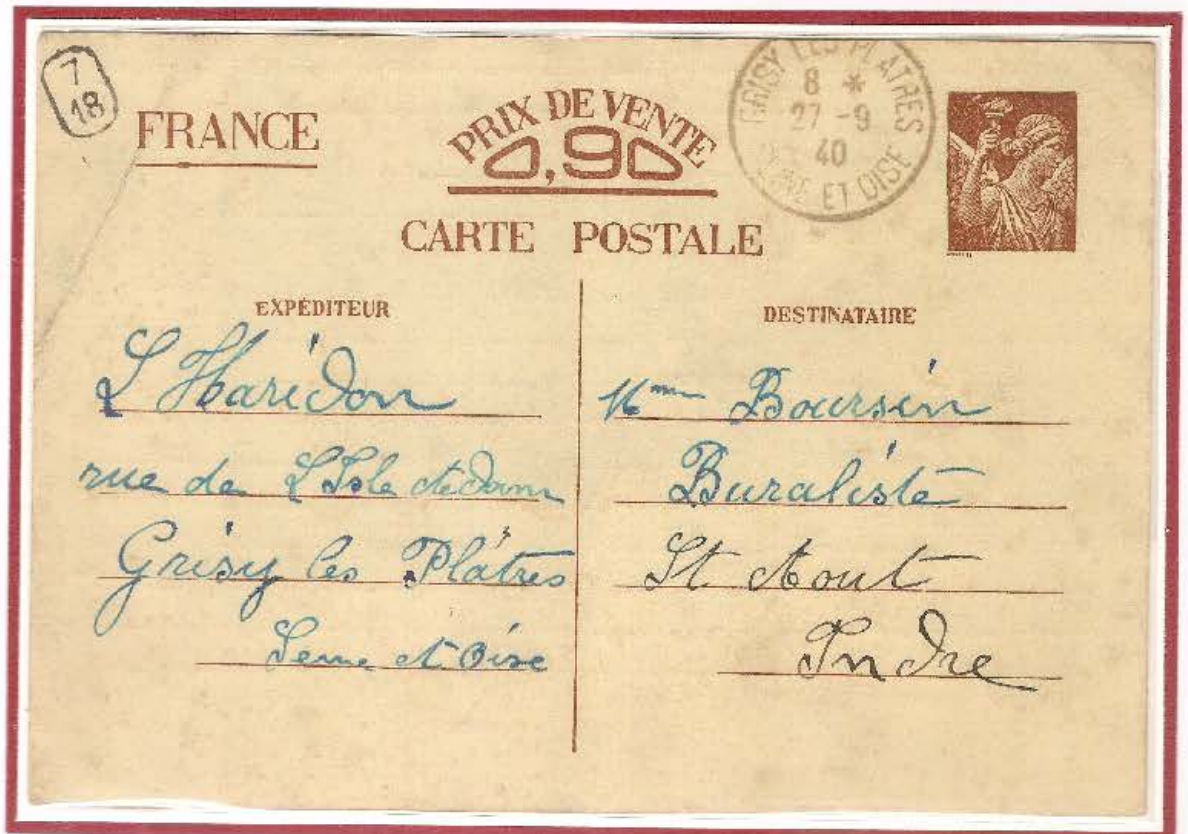 7
18
FRANCE
PRIX DE VENTE
0,90
GRISY LES PLATRES
8 *
27 -9
40
ET OISE
CARTE POSTALE
EXPÉDITEUR
L Haridon
rue de L'Isle Adam
Grisy les Plâtres
Seine et Oise
DESTINATAIRE
Mme Boursin
Buraliste
St Aout
Indre